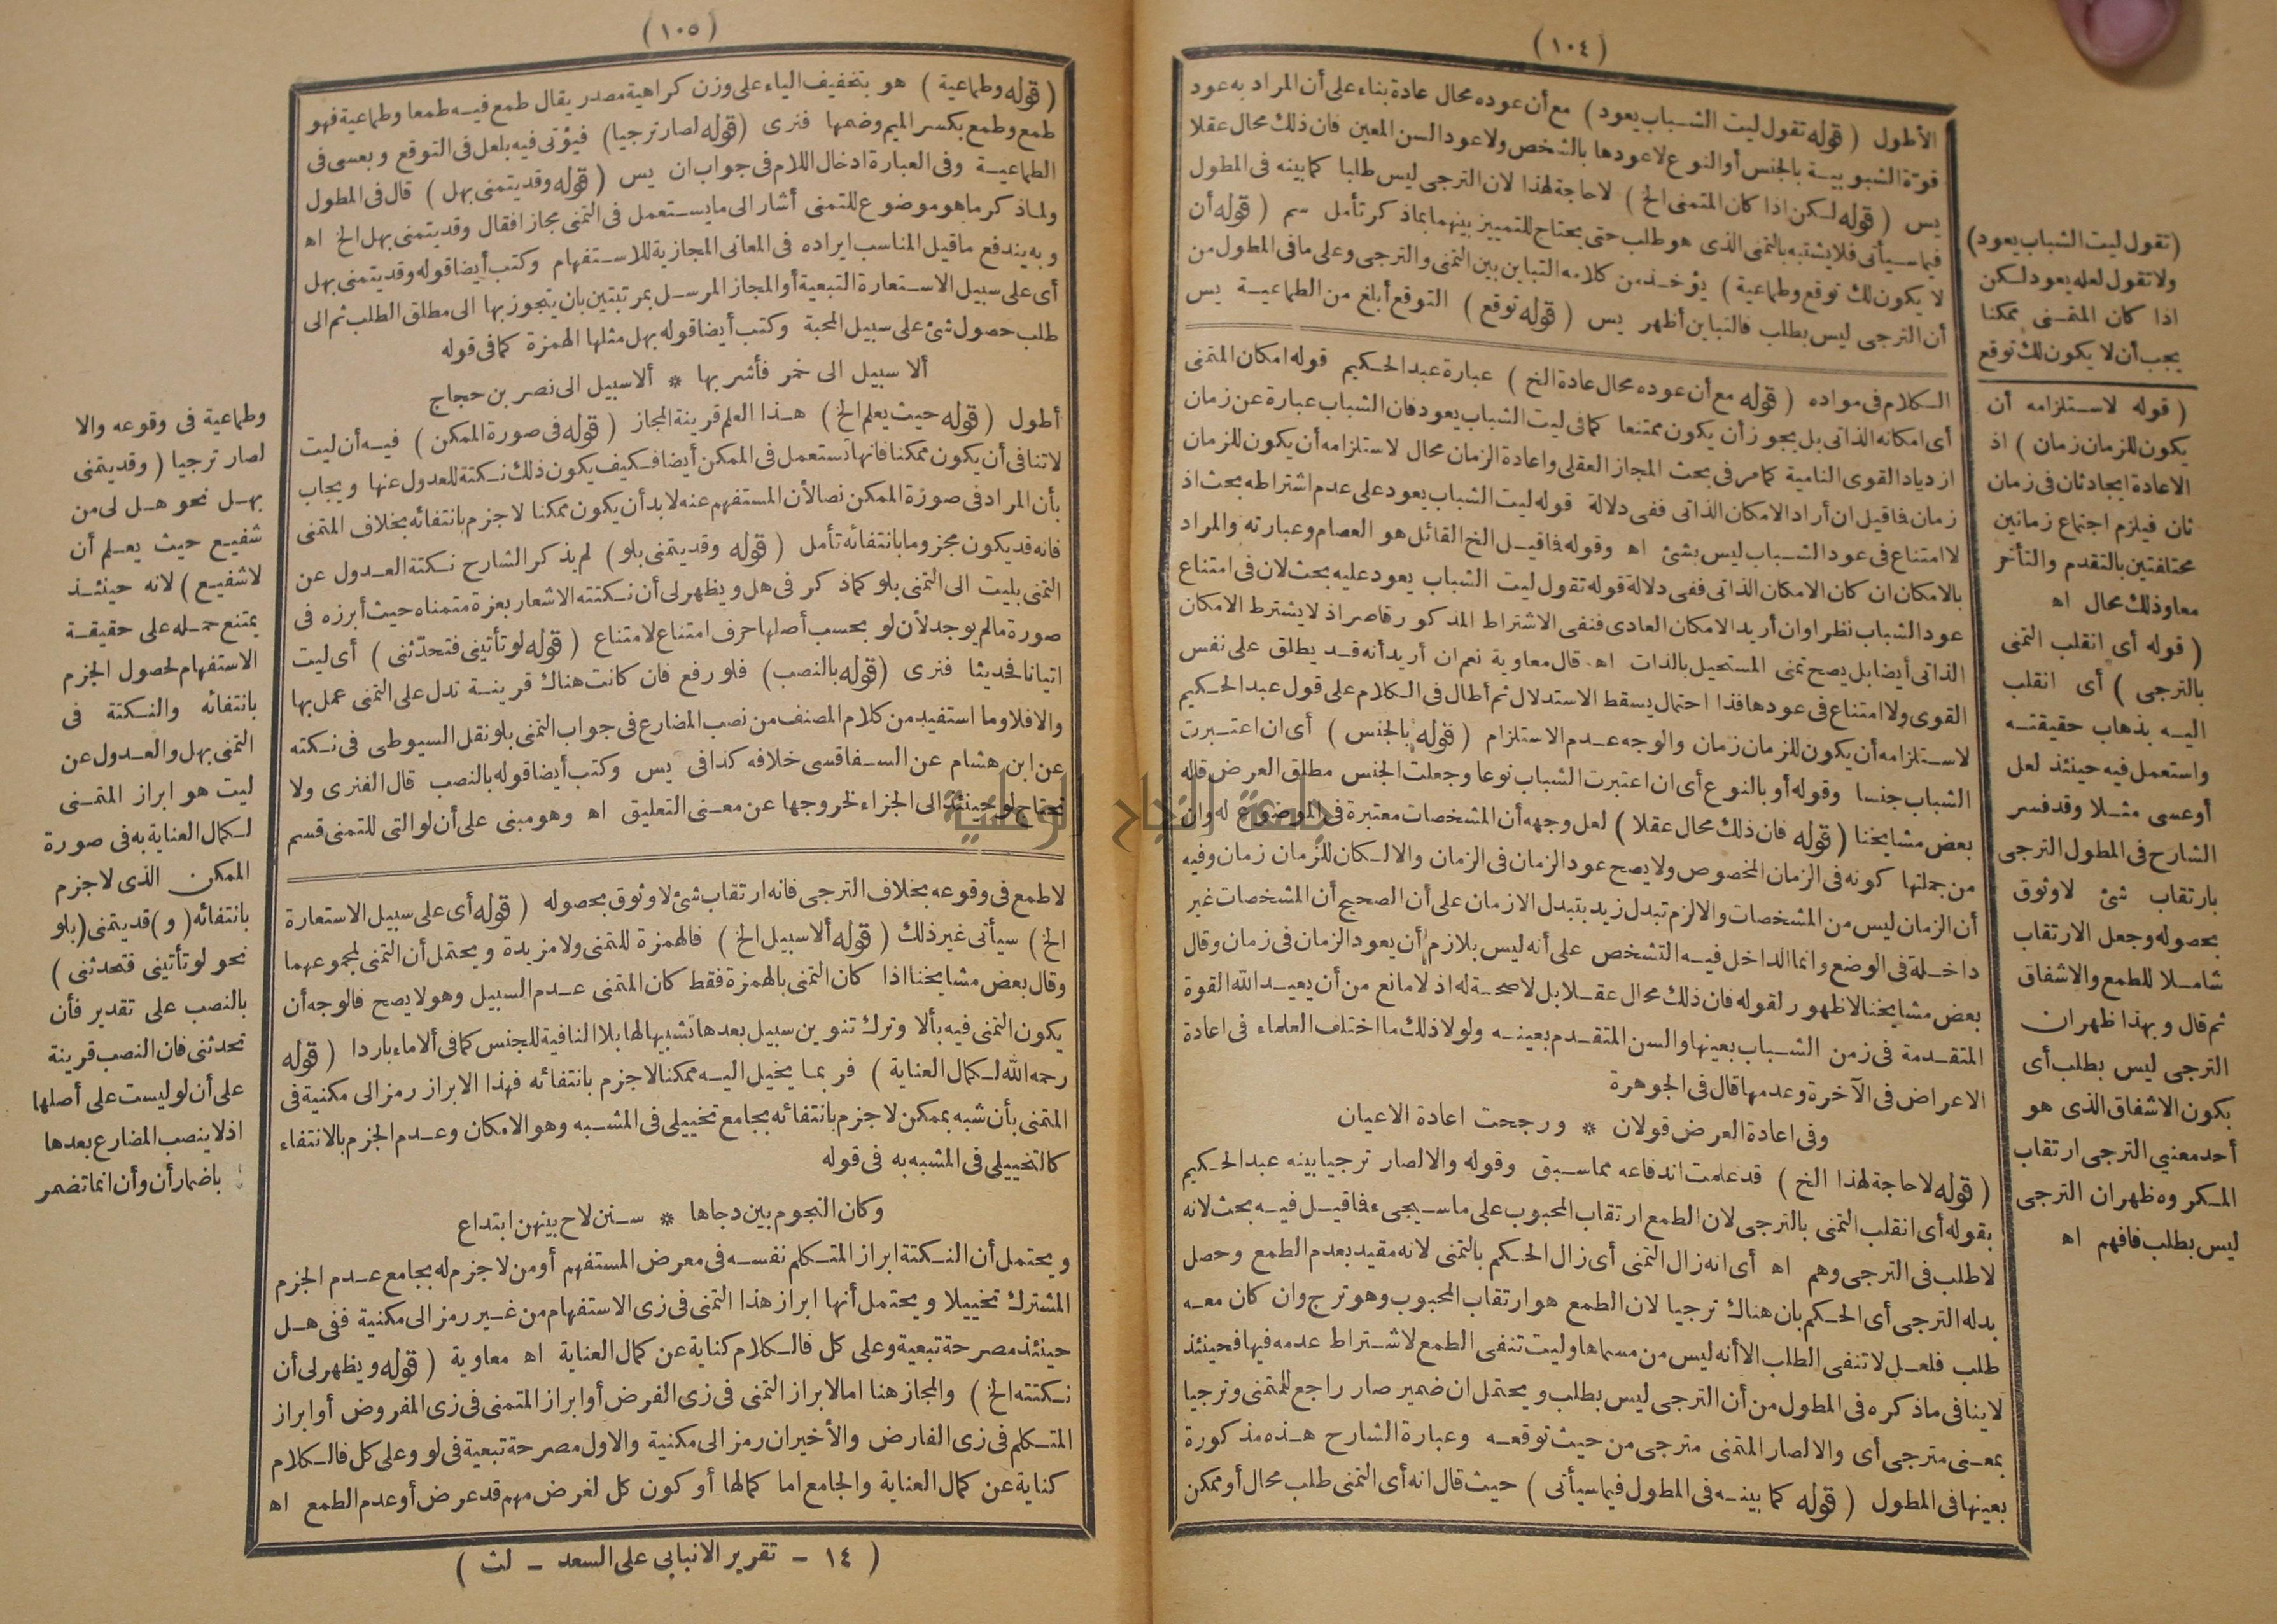 (١٠٤)
الأطول (قوله تقول ليت الشباب يعود) مع أن عوده محال عادة بناء على أن المراد به عود
قوّة الشبوبية بالجنس أو النوع لا عودها بالشخص ولا عود السن المعين فان ذلك محال عقلا
يس (قوله لكن اذا كان المتمنى الخ) لا حاجة لهذا لان الترجى ليس طلبا كما بينه فى المطول
فيما سيأتى فلا يشتبه بالتمنى الذى هو طلب حتى يحتاج للتمييز بينهما بما ذكر تأمل سم (قوله أن
لا يكون لك توقع وطماعية) يؤخذ من كلامه التباين بين التمنى والترجى وعلى ما فى المطول من
أن الترجى ليس بطلب فالتباين أظهر يس (قوله توقع) التوقع أبلغ من الطماعية يس
الكلام فى مواده (قوله مع أن عوده محال عادة الخ) عبارة عبد الحكيم قوله امكان المتمنى
أى امكانه الذاتى بل يجوز أن يكون ممتنعا كما فى ليت الشباب يعود فان الشباب عبارة عن زمان
ازدياد القوى النامية كما مر فى بحث المجاز العقلى واعادة الزمان محال لاستلزامه أن يكون للزمان
زمان فما قيل ان أراد الامكان الذاتى ففى دلالة قوله ليت الشباب يعود على عدم اشتراطه بحث اذ
لا امتناع فى عود الشباب ليس بشئ اه وقوله فما قيل الخ القائل هو العصام وعبارته والمراد
بالامكان ان كان الامكان الذاتى ففى دلالة قوله تقول ليت الشباب يعود عليه بحث لان فى امتناع
عود الشباب نظرا وان أريد الامكان العادى فنفى الاشتراط المذكور قاصر اذ لا يشترط الامكان
الذاتى أيضا بل يصح تمنى المستحيل بالذات اه قال معاوية نعم ان أريد أنه قد يطلق على نفس
القوى ولا امتناع فى عودها فذا احتمال يسقط الاستدلال ثم أطال فى الكلام على قول عبد الحكيم
لاستلزامه أن يكون للزمان زمان والوجه عدم الاستلزام (قوله بالجنس) أى ان اعتبرت
الشباب جنسا وقوله أو بالنوع أى ان اعتبرت الشباب نوعا وجعلت الجنس مطلق العرض قاله
بعض مشايخنا (قوله فان ذلك محال عقلا) لعل وجهه أن المشخصات معتبرة فى الموضوع له وان
من جملتها كونه فى الزمان المخصوص ولا يصح عود الزمان فى الزمان والا لكان للزمان زمان وفيه
أن الزمان ليس من المشخصات والا لزم تبدل زيد بتبدل الازمان على أن الصحيح أن المشخصات غير
داخلة فى الوضع وانما الداخل فيه التشخص على أنه ليس بلازم أن يعود الزمان فى زمان وقال
بعض مشايخنا لا ظهور لقوله فان ذلك محال عقلا بل لا صحة له اذ لا مانع من أن يعيد الله القوة
المتقدمة فى زمن الشباب بعينها والسن المتقدم بعينه ولولا ذلك ما اختلف العلماء فى اعادة
الاعراض فى الآخرة وعدمها قال فى الجوهرة
وفى اعادة العرض قولان * ورجحت اعادة الاعيان
(قوله لا حاجة لهذا الخ) قد علمت اندفاعه مما سبق وقوله والا لصار ترجيا بينه عبد الحكيم
بقوله أى انقلب التمنى بالترجى لان الطمع ارتقاب المحبوب على ما سيجىء فما قيل فيه بحث لانه
لا طلب فى الترجى وهم اه أى انه زال التمنى أى زال الحكم بالتمنى لانه مقيد بعدم الطمع وحصل
بدله الترجى أى الحكم بان هناك ترجيا لان الطمع هو ارتقاب المحبوب وهو ترج وان كان معه
طلب فلعل لا تنفى الطلب الا أنه ليس من مسماها وليت تنفى الطمع لاشتراط عدمه فيها فحينئذ
لا ينافى ما ذكره فى المطول من أن الترجى ليس بطلب ويحتمل ان ضمير صار راجع للمتمنى وترجيا
بمعنى مترجى أى والا لصار المتمنى مترجى من حيث توقعه وعبارة الشارح هذه مذكورة
بعينها فى المطول (قوله كما بينه فى المطول فيما سيأتى) حيث قال انه أى التمنى طلب محال أو ممكن
(تقول ليت الشباب يعود)
ولا تقول لعله يعود لكن
اذا كان المتمنى ممكنا
يجب أن لا يكون لك توقع
(قوله لاستلزامه أن
يكون للزمان زمان) اذ
الاعادة ايجاد ثان فى زمان
ثان فيلزم اجتماع زمانين
مختلفتين بالتقدم والتأخر
معا وذلك محال اه
(قوله أى انقلب التمنى
بالترجى) أى انقلب
اليه بذهاب حقيقته
واستعمل فيه حينئذ لعل
أو عسى مثلا وقد فسر
الشارح فى المطول الترجى
بارتقاب شئ لا وثوق
بحصوله وجعل الارتقاب
شاملا للطمع والاشفاق
ثم قال وبهذا ظهر ان
الترجى ليس بطلب أى
بكون الاشفاق الذى هو
أحد معنيي الترجى ارتقاب
المكروه ظهر ان الترجى
ليس بطلب فافهم اه
(١٠٥)
(قوله وطماعية) هو بتخفيف الياء على وزن كراهية مصدر يقال طمع فيه طمعا وطماعية فهو
طمع وطمع بكسر الميم وضمها فنرى (قوله لصار ترجيا) فيؤتى فيه بلعل فى التوقع وبعسى فى
الطماعية وفى العبارة ادخال اللام فى جواب ان يس (قوله وقد يتمنى بهل) قال فى المطول
ولما ذكر ما هو موضوع للتمنى أشار الى ما يستعمل فى التمنى مجازا فقال وقد يتمنى بهل الخ اه
وبه يندفع ما قيل المناسب ايراده فى المعانى المجازية للاستفهام وكتب أيضا قوله وقد يتمنى بهل
أى على سبيل الاستعارة التبعية أو المجاز المرسل بمرتبتين بان يتجوز بها الى مطلق الطلب ثم الى
طلب حصول شئ على سبيل المحبة وكتب أيضا قوله بهل مثلها الهمزة كما فى قوله
ألا سبيل الى خمر فأشربها * ألا سبيل الى نصر بن حجاج
أطول (قوله حيث يعلم الخ) هذا العلم قرينة المجاز (قوله فى صورة الممكن) فيه أن ليت
لا تنافى أن يكون ممكنا فانها تستعمل فى الممكن أيضا فكيف يكون ذلك نكتة للعدول عنها ويجاب
بأن المراد فى صورة الممكن نصا لأن المستفهم عنه لا بد أن يكون ممكنا لا جزم بانتفائه بخلاف المتمنى
فانه قد يكون مجزوما بانتفائه تأمل (قوله وقد يتمنى بلو) لم يذكر الشارح نكتة العدول عن
التمنى بليت الى التمنى بلو كما ذكر فى هل ويظهر لى أن نكتته الاشعار بعزة متمناه حيث أبرزه فى
صورة ما لم يوجد لأن لو بحسب أصلها حرف امتناع لامتناع (قوله لو تأتينى فتحدّثنى) أى ليت
اتيانا فحديثا فنرى (قوله بالنصب) فلو رفع فان كانت هناك قرينة تدل على التمنى عمل بها
والا فلا وما استفيد من كلام المصنف من نصب المضارع فى جواب التمنى بلو نقل السيوطى فى نكته
عن ابن هشام عن السفاقسى خلافه كذا فى يس وكتب أيضا قوله بالنصب قال الفنرى ولا
تحتاج لو حينئذ الى الجزاء لخروجها عن معنى التعليق اه وهو مبنى على أن لو التى للتمنى قسم
لا طمع فى وقوعه بخلاف الترجى فانه ارتقاب شئ لا وثوق بحصوله (قوله أى على سبيل الاستعارة
الخ) سيأتى غير ذلك (قوله ألا سبيل الخ) فالهمزة للتمنى ولا مزيدة ويحتمل أن التمنى لمجموعهما
وقال بعض مشايخنا اذا كان التمنى بالهمزة فقط كان المتمنى عدم السبيل وهو لا يصح فالوجه أن
يكون التمنى فيه بألا وترك تنوين سبيل بعدها تشبيها لها بلا النافية للجنس كما فى ألا ماء باردا (قوله
رحمه الله لكمال العناية) فربما يخيل اليه ممكنا لا جزم بانتفائه فهذا الابراز رمز الى مكنية فى
المتمنى بأن شبه بممكن لا جزم بانتفائه بجامع تخييلى فى المشبه وهو الامكان وعدم الجزم بالانتفاء
كالتخييلى فى المشبه به فى قوله
وكان النجوم بين دجاها * سنن لاح بينهن ابتداع
ويحتمل أن النكتة ابراز المتكلم نفسه فى معرض المستفهم أو من لا جزم له بجامع عدم الجزم
المشترك تخييلا ويحتمل أنها ابراز هذا التمنى فى زى الاستفهام من غير رمز الى مكنية ففى هل
حينئذ مصرحة تبعية وعلى كل فالكلام كناية عن كمال العناية اه معاوية (قوله ويظهر لى أن
نكتته الخ) والمجاز هنا اما لابراز التمنى فى زى الفرض أو ابراز المتمنى فى زى المفروض أو ابراز
المتكلم فى زى الفارض والأخيران رمز الى مكنية والاول مصرحة تبعية فى لو وعلى كل فالكلام
كناية عن كمال العناية والجامع اما كمالها أو كون كل لغرض مهم قد عرض أو عدم الطمع اه
وطماعية فى وقوعه والا
لصار ترجيا (وقد يتمنى
بهل نحو هل لى من
شفيع حيث يعلم أن
لا شفيع) لانه حينئذ
يمتنع حمله على حقيقة
الاستفهام لحصول الجزم
بانتفائه والنكتة فى
التمنى بهل والعدول عن
ليت هو ابراز المتمنى
لكمال العناية به فى صورة
الممكن الذى لا جزم
بانتفائه (و) قد يتمنى (بلو
نحو لو تأتينى فتحدثنى)
بالنصب على تقدير فأن
تحدثنى فان النصب قرينة
على أن لو ليست على أصلها
اذ لا ينصب المضارع بعدها
باضمار أن وأن انما تضمر
(١٤ - تقرير الانبابى على السعد - لث)
جامعة النجاح الوطنية